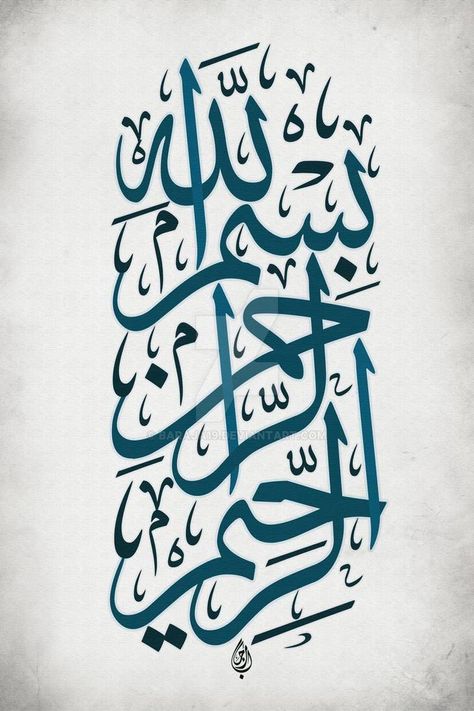 بسم الله
الرحمن
الرحيم
© BARAJA19.DEVIANTART.COM